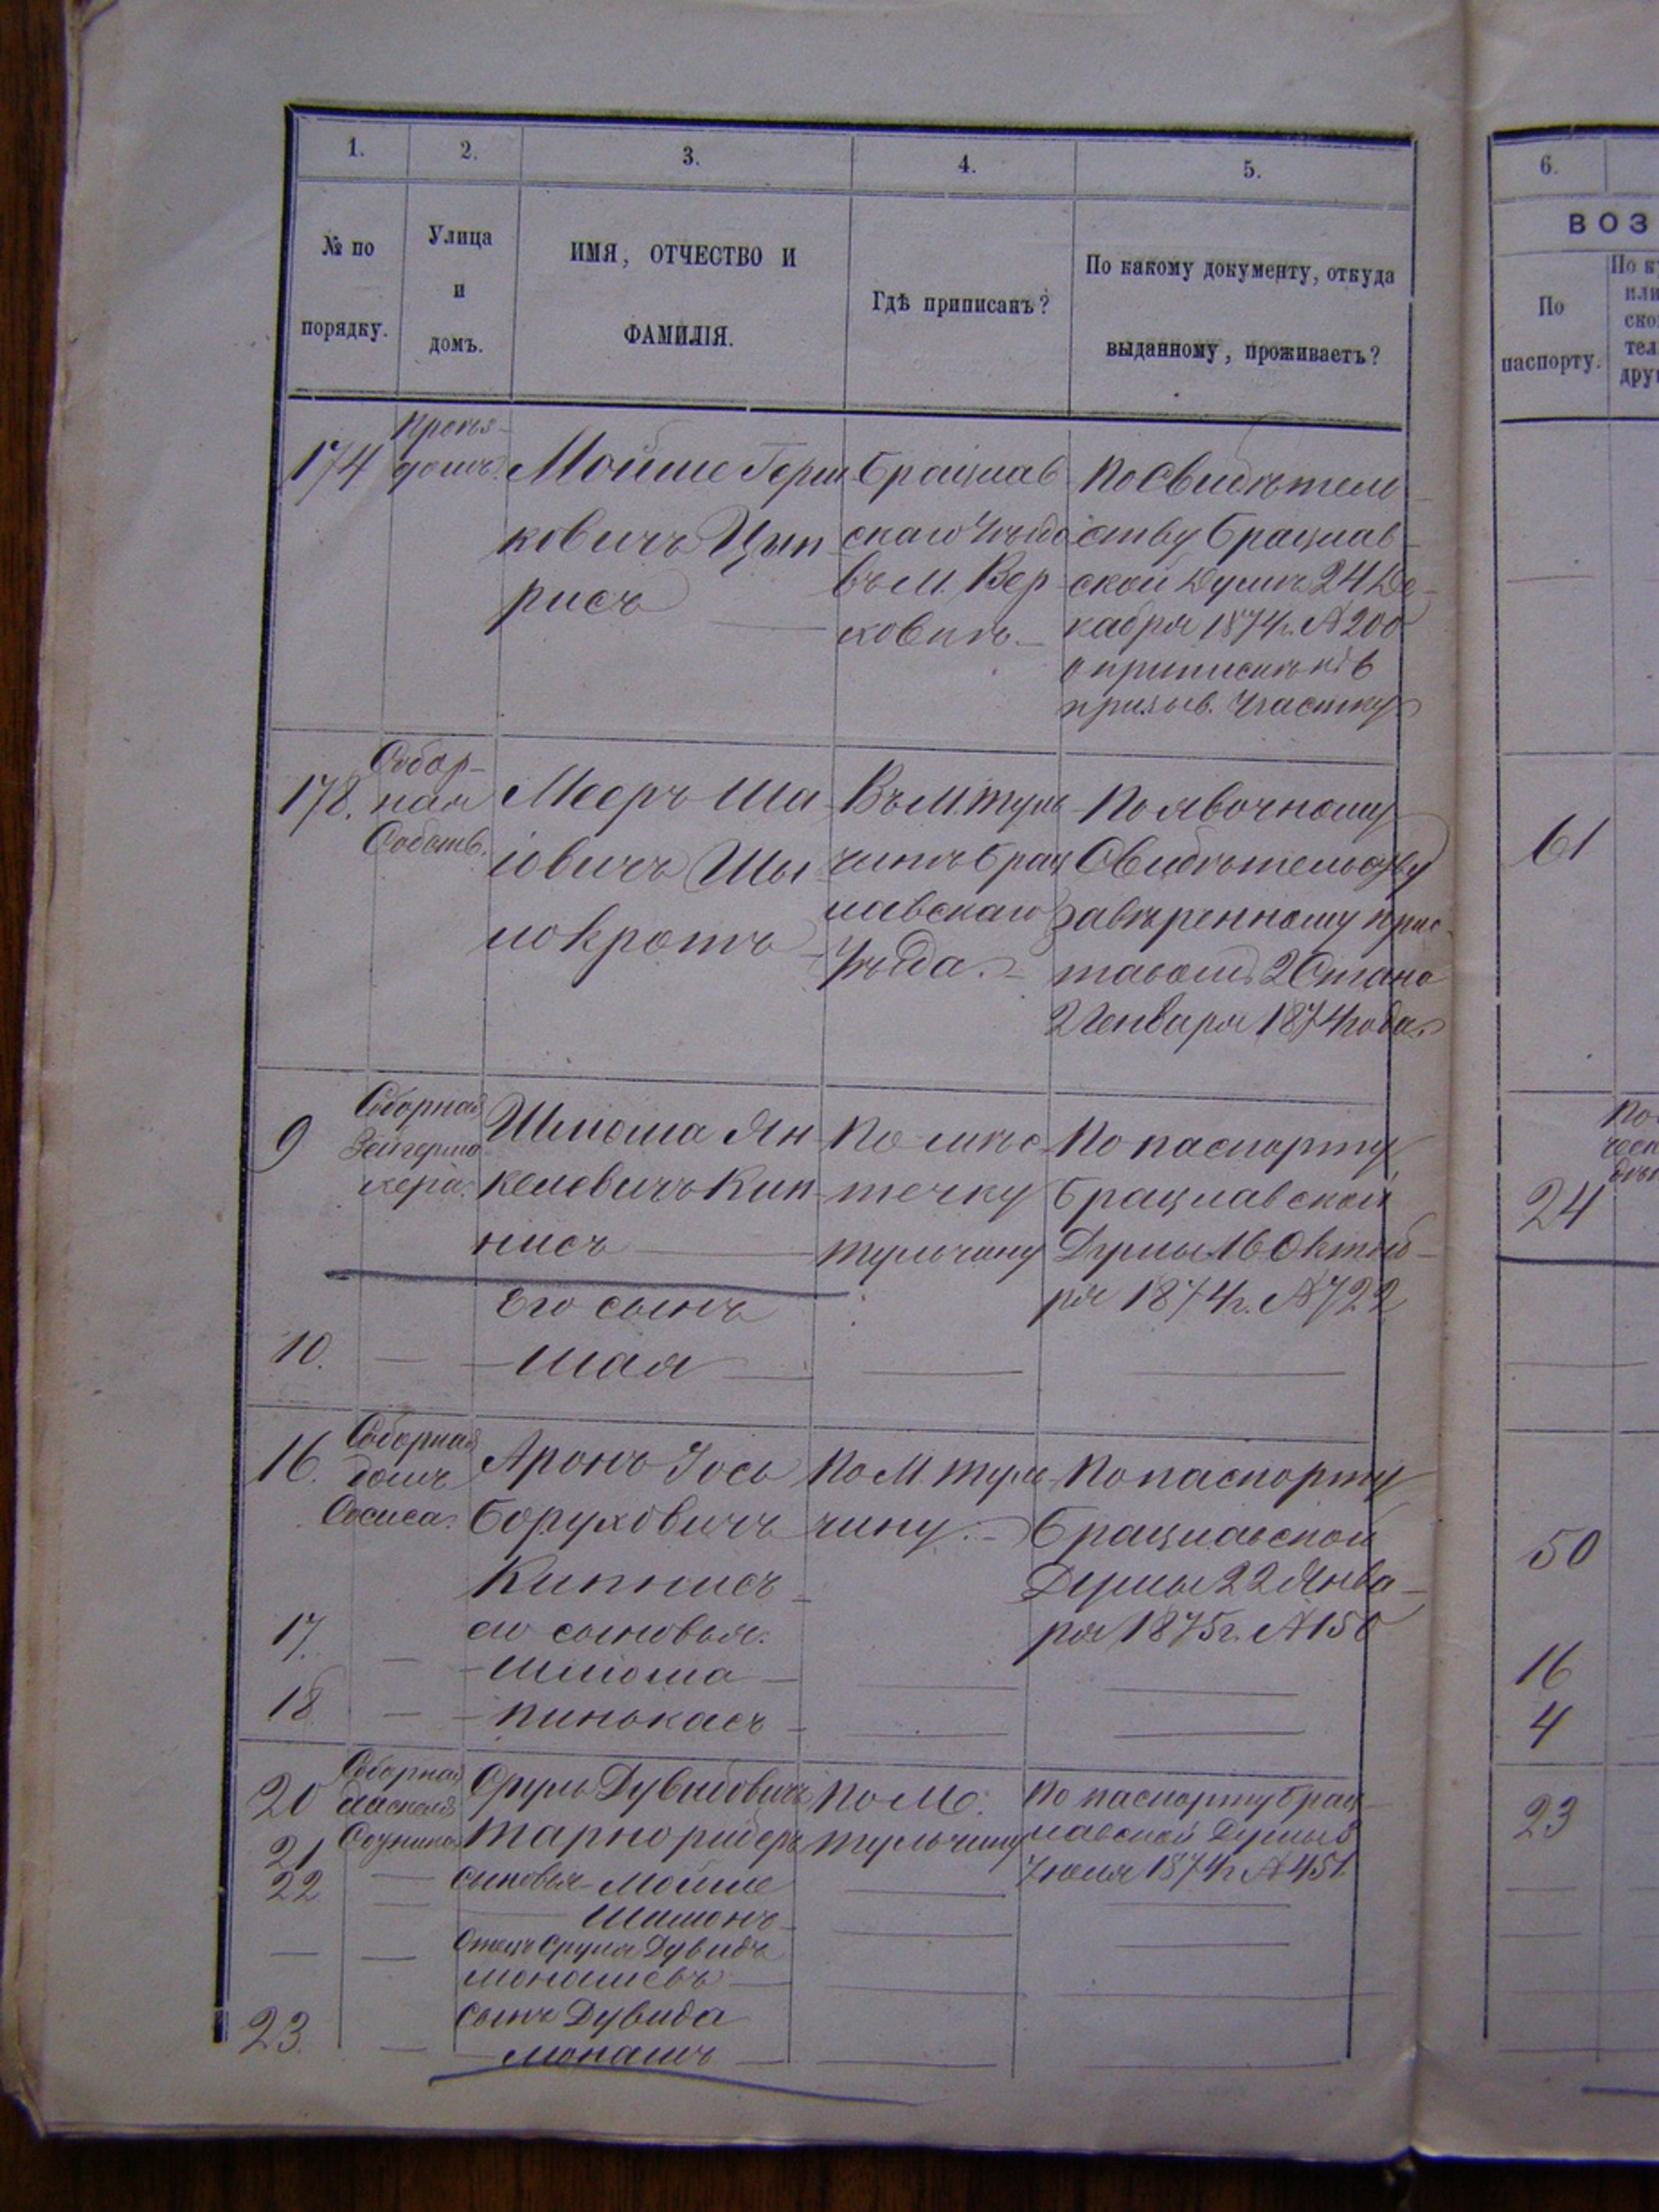 1.
2.
3.
4.
5.
№ по
порядку.
Улица
и
домъ.
ИМЯ, ОТЧЕСТВО И
ФАМИЛІЯ.
Гдѣ приписанъ?
По какому документу, откуда
выданному, проживаетъ?
6.
ВОЗ
По
паспорту.
174
Мойше Герш
ковичъ Цып
рисъ
Брацлав
скаго Уѣзда
въ М. Вер
ховкѣ
По Свидѣтель
ству Брацлав
ской Думы 24 Де-
кабря 1874г. № 200
о припискѣ къ
призыв. Участку
178.
Собор-
ная
Собств.
Мееръ Ша
іовичъ Шы
локротъ
Въ М. Туль
чинѣ Брац
лавскаго
Уѣзда.
По явочному
Свидѣтельству
завѣренному прис
тавомъ 2 Стана
2 Генваря 1874 года.
61
9
Соборная
Шлiома Ян
келевичъ Кип
нисъ
По мѣс
течку
Тульчину
По паспорту
Брацлавской
Думы 16 Октяб-
ря 1874г. № 722
24
Его сынъ
10.
Шая
16.
Соборная
домъ
Сосиса.
Аронъ Іось
Боруховичъ
Кипнисъ
По М. Туль
чину.
По паспорту
Брацлавской
Думы 22 Янва-
ря 1875г. № 150
50
его сыновья:
17.
Шлiома
16
18
Пинькасъ
4
20
Соборная
Сруль Дувидовичъ
Тарнориберъ
По М.
Тульчину
По паспорту Брац-
лавской Думы 8
Іюня 1874г. № 451.
23
21
сыновья Мойше
22
Шимонъ
Отецъ Сруля Дувидъ
Монашевъ
Сынъ Дувида
23.
Монашъ